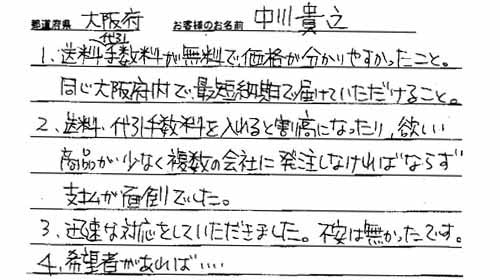 都道府県 大阪府 お客様のお名前 中川貴之
代引
1、送料手数料が無料で価格が分かりやすかったこと。
同じ大阪府内で最短納期で届けていただけること。
2、送料・代引手数料を入れると割高になったり、欲しい
商品が少なく複数の会社に発注しなければならず
支払が面倒でした。
3、迅速な対応をしていただきました。不安は無かったです。
4、希望者があれば‥‥